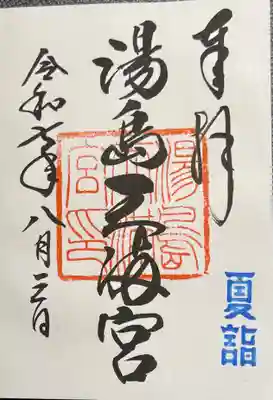 奉拝
夏詣
湯島天満宮
令和七年八月三日